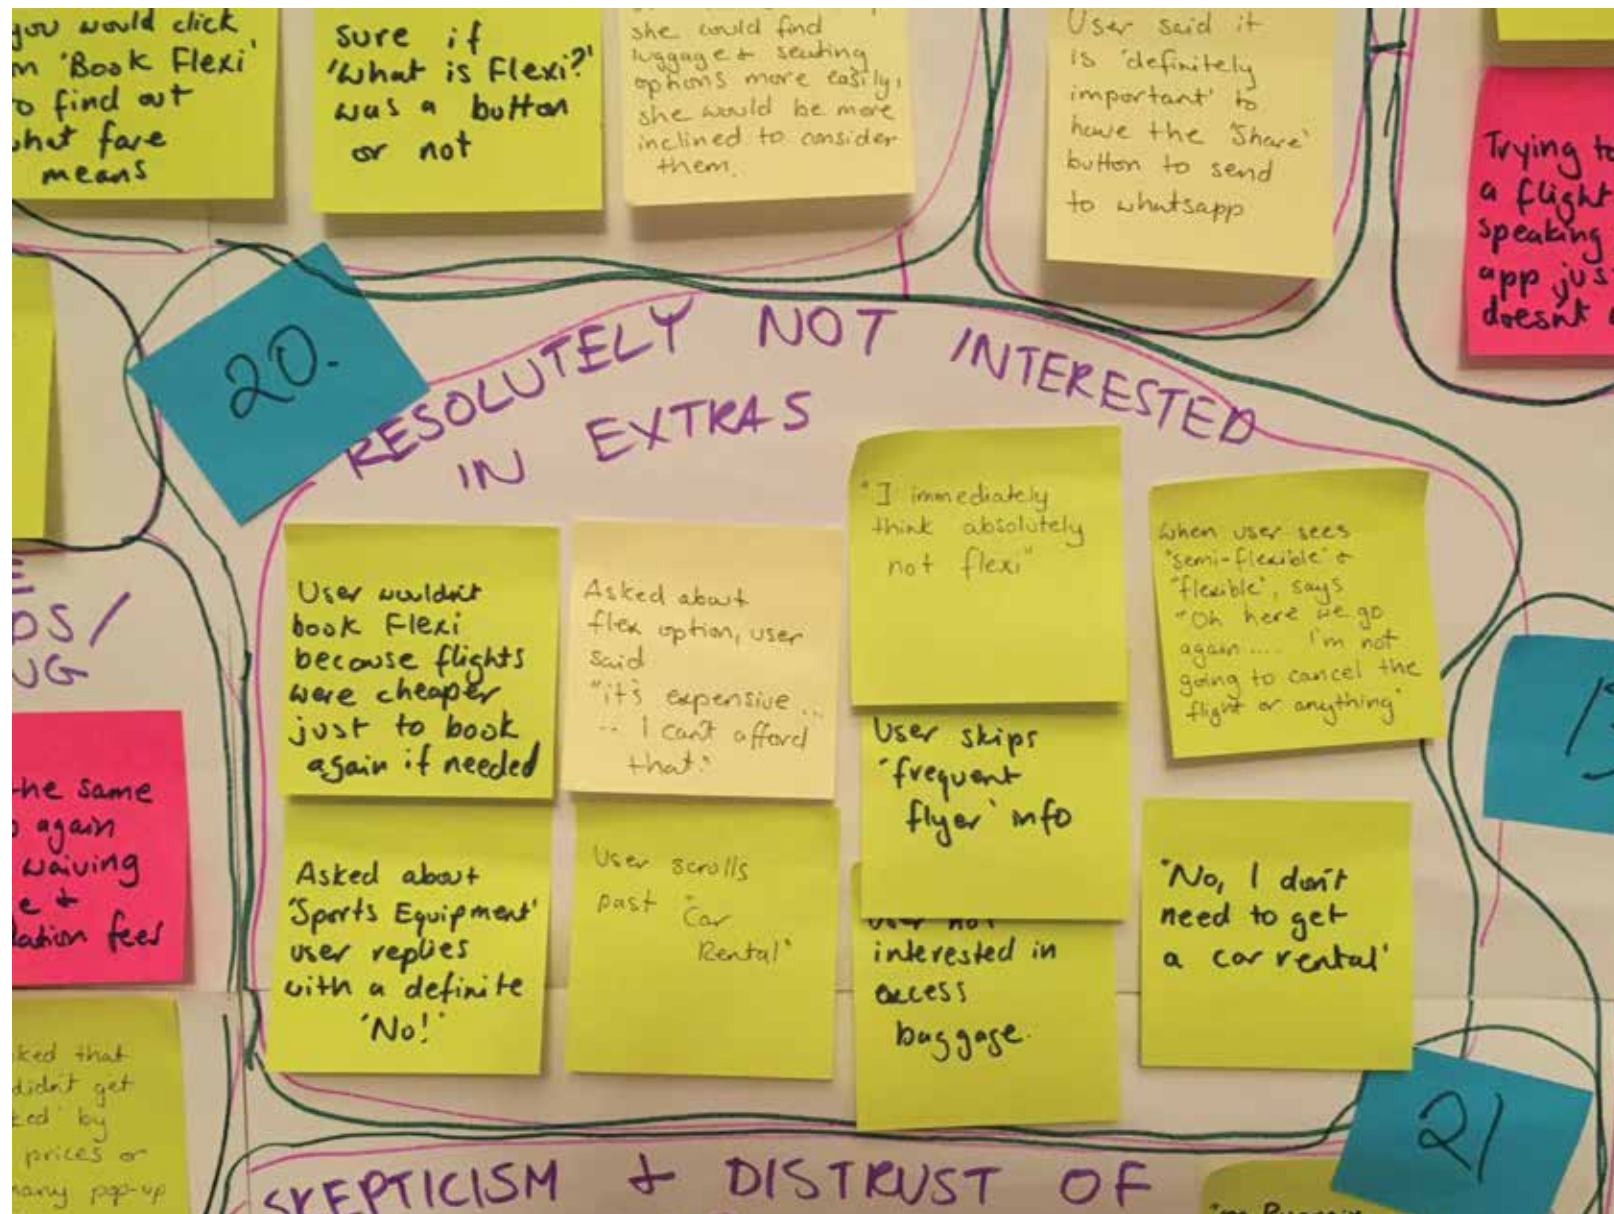 you would click
'Book Flexi'
to find out
what fare
means
sure if
'What is Flexi?'
was a button
or not
she could find
luggage + seating
options more easily,
she would be more
inclined to consider
them.
User said it
is 'definitely
important' to
have the 'Share'
button to send
to whatsapp
Trying to
a flight
speaking
app jus
doesnt
20.
RESOLUTELY NOT INTERESTED
IN EXTRAS
User wouldn't
book Flexi
because flights
were cheaper
just to book
again if needed
Asked about
flex option, user
said
"it's expensive ...
-- I can't afford
that."
"I immediately
think absolutely
not flexi"
when user sees
"semi-flexible" +
"flexible", says
"Oh here we go
again..... I'm not
going to cancel the
flight or anything"
User skips
'frequent
flyer' info
Asked about
'Sports Equipment'
user replies
with a definite
'No!'
User scrolls
past "Car
Rental"
User not
interested in
excess
baggage.
"No, I don't
need to get
a car rental'
the same
again
waiving
e +
lation fees
ked that
didn't get
ked' by
prices or
many pop-up
21
SKEPTICISM + DISTRUST OF